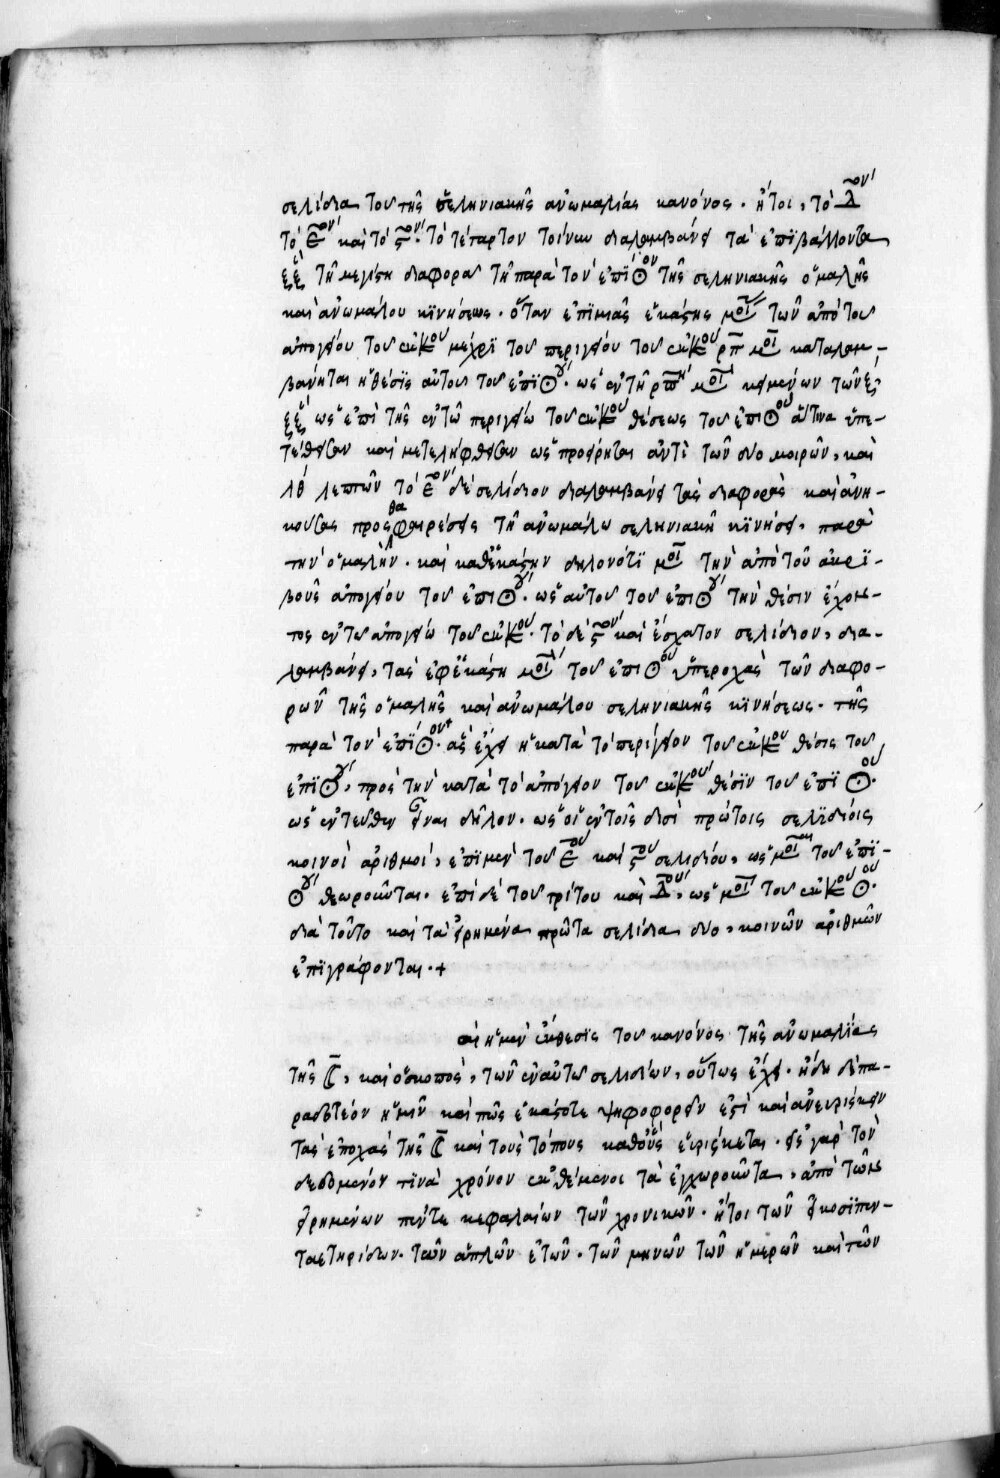 σελίδια τοῦ τῆς σεληνιακῆς ἀνωμαλίας κανόνος. ἤτοι, τὸ Δ̅ον
τὸ Ε̅ον καὶ τὸ ϛ̅ον. τὸ τέταρτον τοίνυν διαλαμβάνει τὰ ἐπϊβάλλοντα
ξξ τῇ μεγίστῃ διαφορᾷ τῇ παρὰ τὸν ἐπΐ☉ον τῆς σεληνιακῆς ὁμαλῆς
καὶ ἀνωμάλου κϊνήσεως. ὅταν ἐπὶ μιᾶς ἑκάστης μοι τῶν ἀπὸ τοῦ
ἀπογείου τοῦ ἐκκου μέχρϊ τοῦ περιγείου τοῦ ἐκκου ρπ μοι καταλαμ-
βάνηται ἡ θέσϊς αὐτοῦ τοῦ ἐπϊ☉υ. ὡς ἐν τῇ ρπ μοι κειμένων τῶν ξ
ξξ ὡς ἐπὶ τῆς ἐν τῷ περιγείῳ τοῦ ἐκκου θέσεως τοῦ ἐπι☉ου ἅτινα ὑπε-
τέθησαν καὶ μετελήφθησαν ὡς προείρηται ἀντὶ τῶν δύο μοιρῶν, καὶ
λθ λεπτῶν τὸ Ε̅ον δὲ σελίδιον διαλαμβάνει τὰς διαφορὰς καὶ ἀνη-
κούσας προσθαφαιρέσεις τῇ ἀνωμάλῳ σεληνιακῇ κϊνήσει, παρὰ
τὴν ὁμαλήν. καὶ καθ' ἑκάστην δηλονότϊ μοι τὴν ἀπὸ τοῦ ἀκρϊ-
βοῦς ἀπογείου τοῦ ἐπι☉υ. ὡς αὐτοῦ τοῦ ἐπι☉υ τὴν θέσιν ἔχον-
τος ἐν τῷ ἀπογείῳ τοῦ ἐκκου. τὸ δὲ ϛ̅ον καὶ ἔσχατον σελίδιον, δια-
λαμβάνει, τὰς ἐφ' ἑκάστῃ μοι τοῦ ἐπι☉ου ὑπεροχὰς τῶν διαφο-
ρῶν τῆς ὁμαλῆς καὶ ἀνωμάλου σεληνιακῆς κϊνήσεως. τῆς
παρὰ τὸν ἐπΐ☉ον. ἃς ἔχει ἡ κατὰ τὸ περίγειον τοῦ ἐκκου θέσις τοῦ
ἐπϊ☉υ, πρὸς τὴν κατὰ τὸ ἀπόγειον τοῦ ἐκκου θέσϊν τοῦ ἐπϊ☉ου.
ὡς ἐντεῦθεν εἶναι δῆλον. ὡς οἱ ἐν τοῖς δυσὶ πρώτοις σελϊδίοις
κοινοὶ ἀριθμοὶ, ἐπϊ μὲν τοῦ Ε̅ου καὶ ϛ̅ου σελιδίου, ὡς μοι τοῦ ἐπϊ-
☉υ θεωροῦνται. ἐπὶ δὲ τοῦ τρίτου καὶ Δ̅ου, ὡς μοι τοῦ ἐκκου ☉ου.
διὰ τοῦτο καὶ τὰ εἰρημένα πρῶτα σελίδια δυο, κοινῶν ἀριθμῶν
ἐπϊγράφονται.+
αι ἡ μὲν ἔκθεσϊς τοῦ κανόνος τῆς ἀνωμαλίας
τῆς ☾, καὶ ὁ σκοπὸς, τῶν ἐν αὐτῷ σελιδίων, οὕτως ἔχει. ἤδη δὲ πα-
ραδοτέον ἡμῖν καὶ πῶς ἑκάστοτε ψηφοφορεῖν ἔστι καὶ ἀνευρίσκειν
τὰς ἐποχὰς τῆς ☾ καὶ τοὺς τόπους καθ' οὓς εὑρίσκεται. εἰς γὰρ τὸν
δεδομένον τϊνὰ χρόνον ἐκθέμενοι τὰ ἐγχωροῦντα, ἀπὸ τῶν
εἰρημένων πέντε κεφαλαίων τῶν χρονικῶν. ἤτοι τῶν εἰκοσϊπεν-
ταετηρίδων. τῶν ἁπλῶν ἐτῶν. τῶν μηνῶν τῶν ἡμερῶν καὶ τῶν